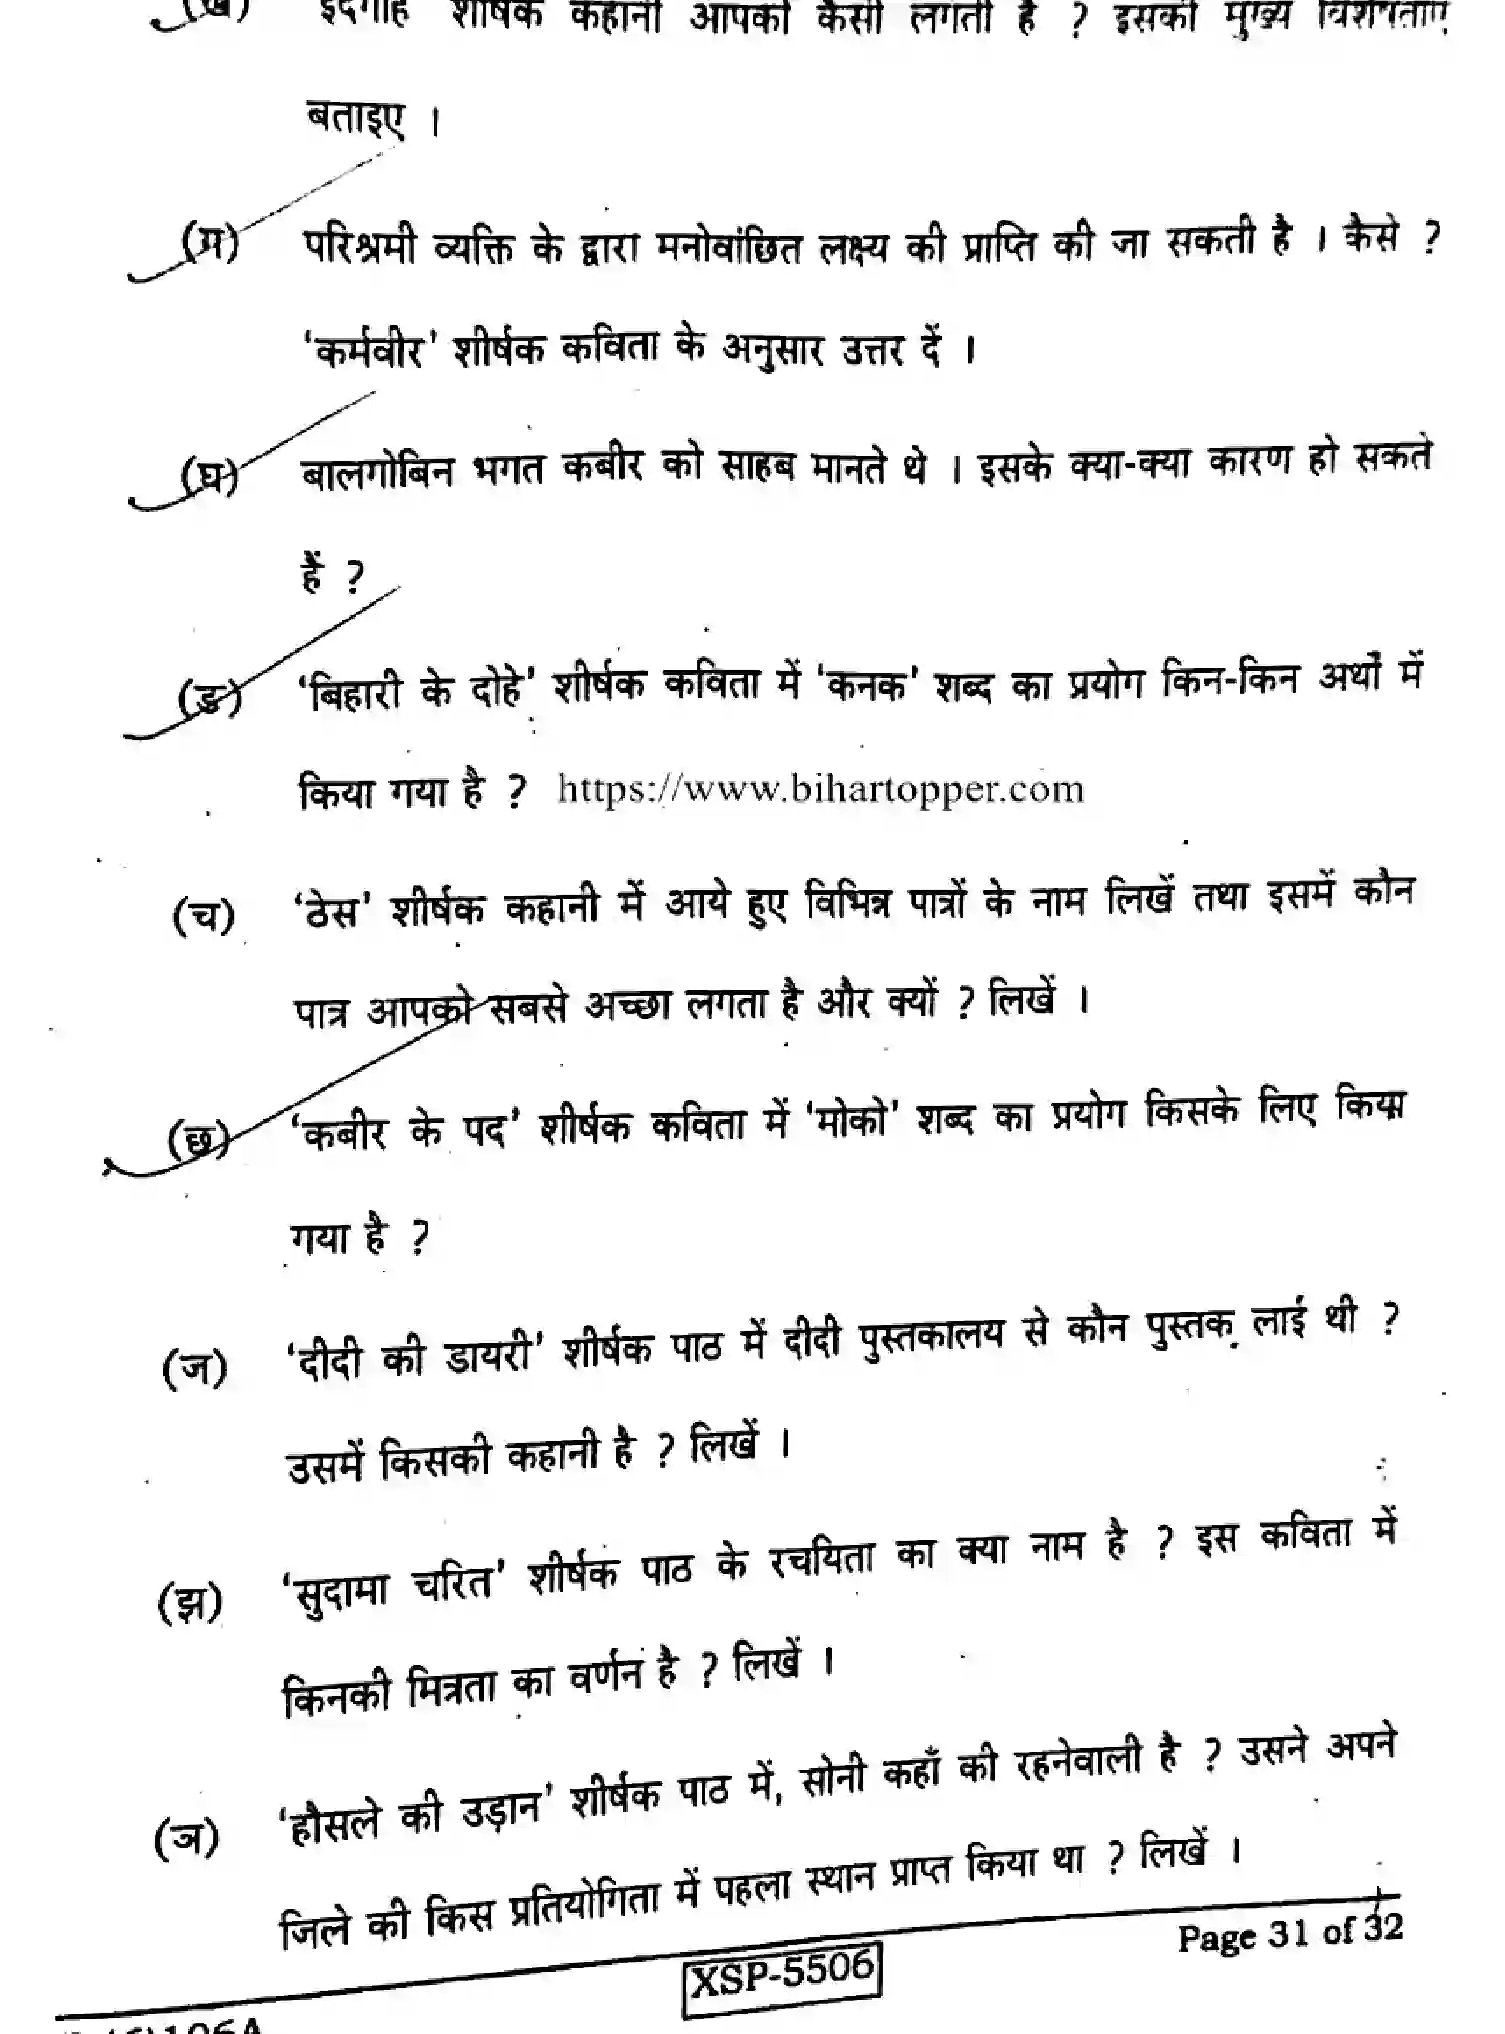 (ख) ईदगाह शीर्षक कहानी आपको कैसी लगती है ? इसकी मुख्य विशेषताएँ
बताइए ।
(ग) परिश्रमी व्यक्ति के द्वारा मनोवांछित लक्ष्य की प्राप्ति की जा सकती है । कैसे ?
‘कर्मवीर’ शीर्षक कविता के अनुसार उत्तर दें ।
(घ) बालगोबिन भगत कबीर को साहब मानते थे । इसके क्या-क्या कारण हो सकते
हैं ?
(ङ) ‘बिहारी के दोहे’ शीर्षक कविता में ‘कनक’ शब्द का प्रयोग किन-किन अर्थों में
किया गया है ? https://www.bihartopper.com
(च) ‘ठेस’ शीर्षक कहानी में आये हुए विभिन्न पात्रों के नाम लिखें तथा इसमें कौन
पात्र आपको सबसे अच्छा लगता है और क्यों ? लिखें ।
(छ) ‘कबीर के पद’ शीर्षक कविता में ‘मोको’ शब्द का प्रयोग किसके लिए किया
गया है ?
(ज) ‘दीदी की डायरी’ शीर्षक पाठ में दीदी पुस्तकालय से कौन पुस्तक लाई थी ?
उसमें किसकी कहानी है ? लिखें ।
(झ) ‘सुदामा चरित’ शीर्षक पाठ के रचयिता का क्या नाम है ? इस कविता में
किनकी मित्रता का वर्णन है ? लिखें ।
(ञ) ‘हौसले की उड़ान’ शीर्षक पाठ में, सोनी कहाँ की रहनेवाली है ? उसने अपने
जिले की किस प्रतियोगिता में पहला स्थान प्राप्त किया था ? लिखें ।
XSP-5506
Page 31 of 32